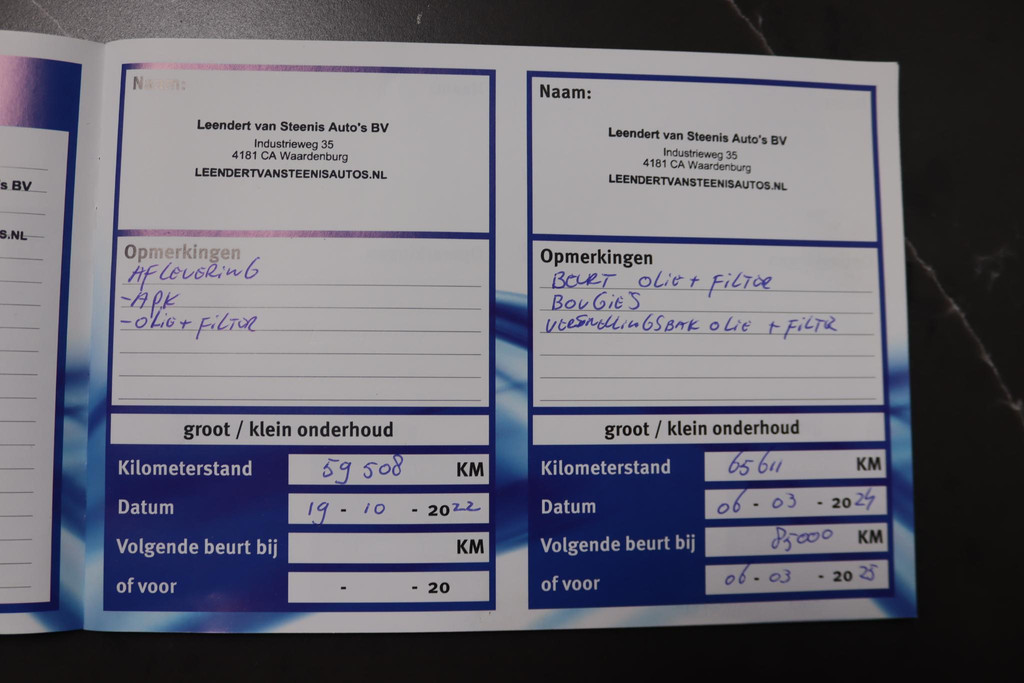 s BV
S.NL
Naam:
Leendert van Steenis Auto's BV
Industrieweg 35
4181 CA Waardenburg
LEENDERTVANSTEENISAUTOS.NL
Opmerkingen
AFLEVERING
-APK
-OLIE + FILTER
groot / klein onderhoud
Kilometerstand 59 508 KM
Datum 19 - 10 - 2022
Volgende beurt bij KM
of voor - - 20
Naam:
Leendert van Steenis Auto's BV
Industrieweg 35
4181 CA Waardenburg
LEENDERTVANSTEENISAUTOS.NL
Opmerkingen
BEURT OLIE + FILTER
BOUGIES
VERSNELLINGSBAK OLIE + FILTER
groot / klein onderhoud
Kilometerstand 65611 KM
Datum 06 - 03 - 2024
Volgende beurt bij 85000 KM
of voor 06 - 03 - 2025